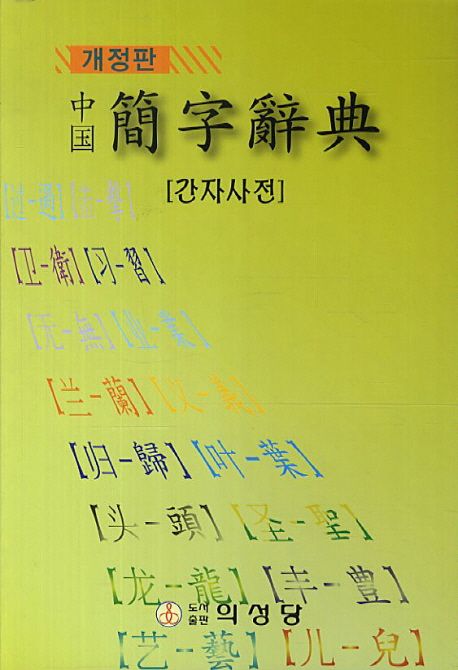 개정판
中国 簡字辭典
[간자사전]
【过-過】【击-擊】
【卫-衛】【习-習】
【无-無】【业-業】
【兰-蘭】【义-義】
【归-歸】【叶-葉】
【头-頭】【圣-聖】
【龙-龍】【丰-豊】
도서출판 의성당
【艺-藝】【儿-兒】